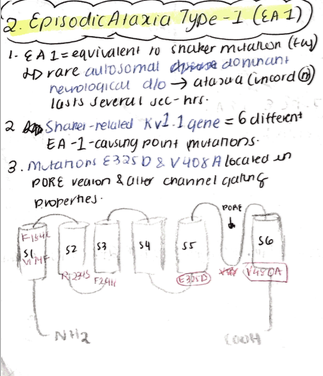 2. Episodic Ataxia Type-1 (EA1)
1- EA1 = equivalent to shaker mutation (fly)
rare autosomal dominant
neurological d/o → ataxia (incord(n)
lasts several sec-hrs.
2 Shaker-related Kv1.1 gene = 6 different
EA-1-causing point mutations.
3. Mutations E325D & V408A located in
PORE region & alter channel gating
properties.
PORE
S1 S2 S3 S4 S5 S6
E325D
NH2 COOH